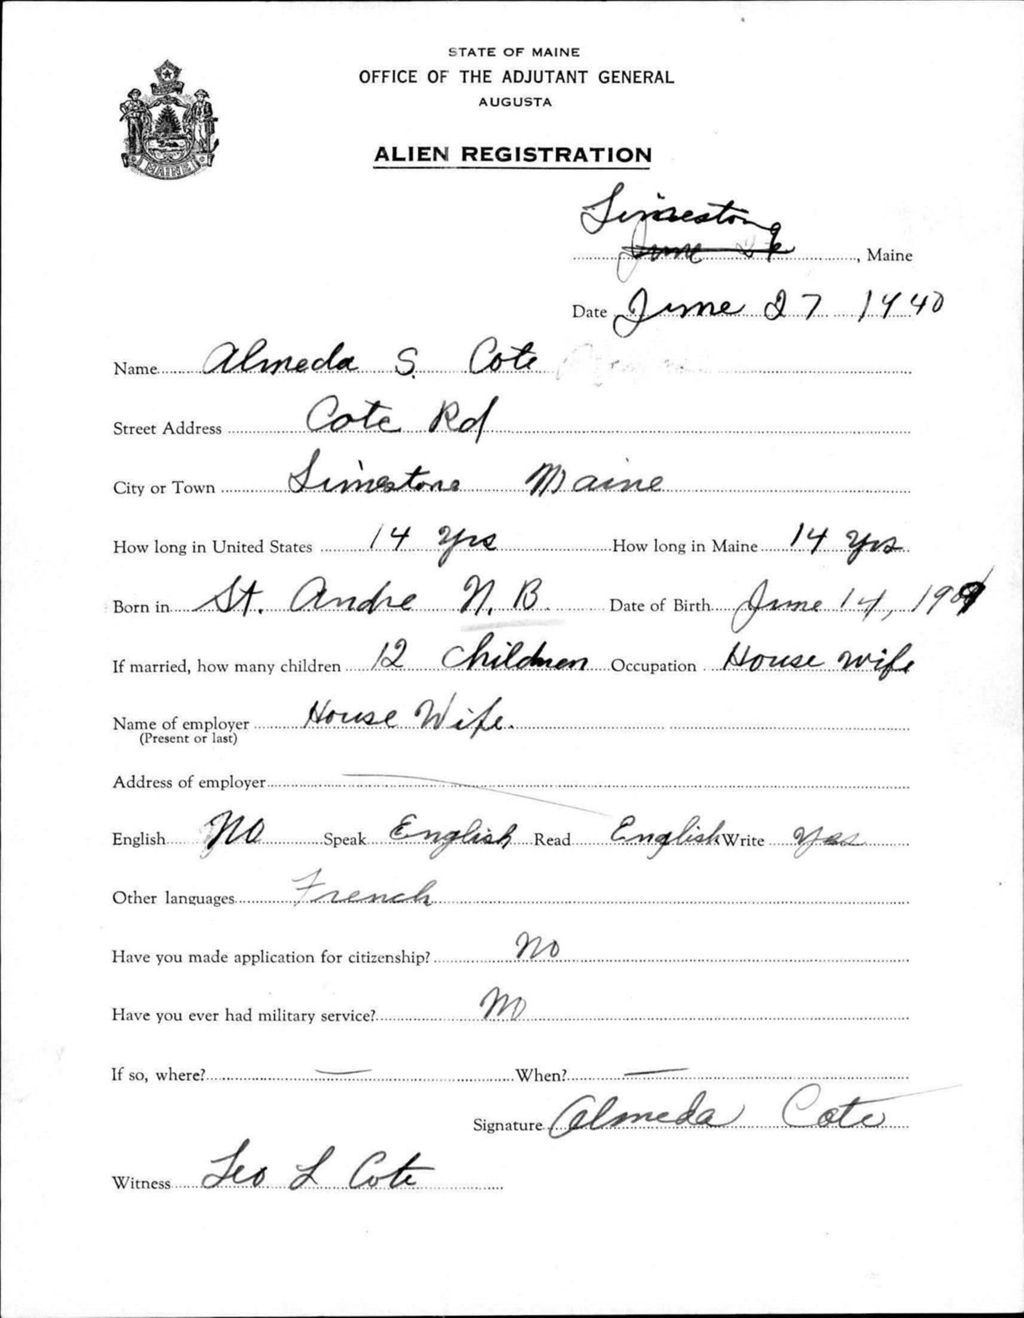 STATE OF MAINE
OFFICE OF THE ADJUTANT GENERAL
AUGUSTA
MAINE
ALIEN REGISTRATION
Limestone
June 26, Maine
Date June 27 1940
Name Almeda S. Cote
Street Address Cote Rd
City or Town Limestone Maine
How long in United States 14 Yrs How long in Maine 14 Yrs
Born in St. Andre N.B. Date of Birth June 14, 190
If married, how many children 12 children Occupation House wife
Name of employer House Wife.
(Present or last)
Address of employer
English No Speak English Read English Write Yes
Other languages French
Have you made application for citizenship? No
Have you ever had military service? No
If so, where? — When? —
Signature Almeda Cote
Witness Leo L Cote